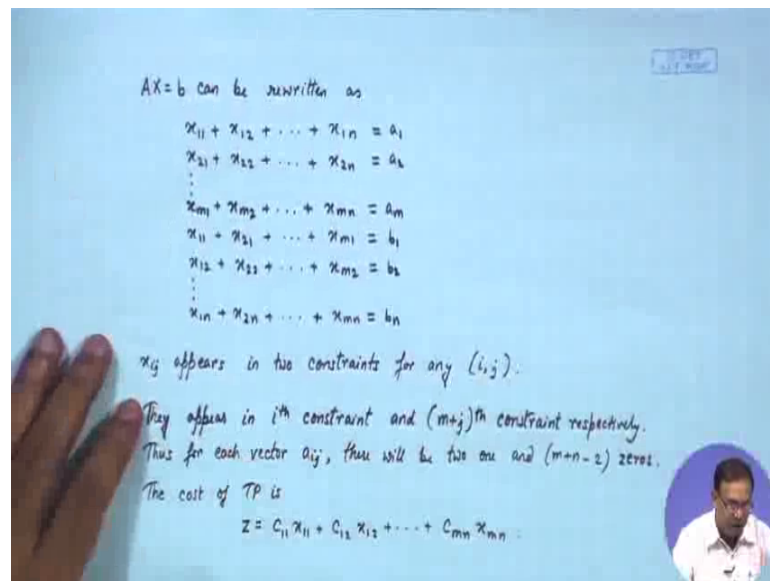 AX = b can be rewritten as
x₁₁ + x₁₂ + ... + x₁ₙ = a₁
x₂₁ + x₂₂ + ... + x₂ₙ = a₂
⋮
xₘ₁ + xₘ₂ + ... + xₘₙ = aₘ
x₁₁ + x₂₁ + ... + xₘ₁ = b₁
x₁₂ + x₂₂ + ... + xₘ₂ = b₂
⋮
x₁ₙ + x₂ₙ + ... + xₘₙ = bₙ
xᵢⱼ appears in two constraints for any (i,j).
They appear in iᵗʰ constraint and (m+j)ᵗʰ constraint respectively.
Thus for each vector aᵢⱼ, there will be two one and (m+n-2) zeros.
The cost of TP is
Z = C₁₁ x₁₁ + C₁₂ x₁₂ + ... + Cₘₙ xₘₙ.